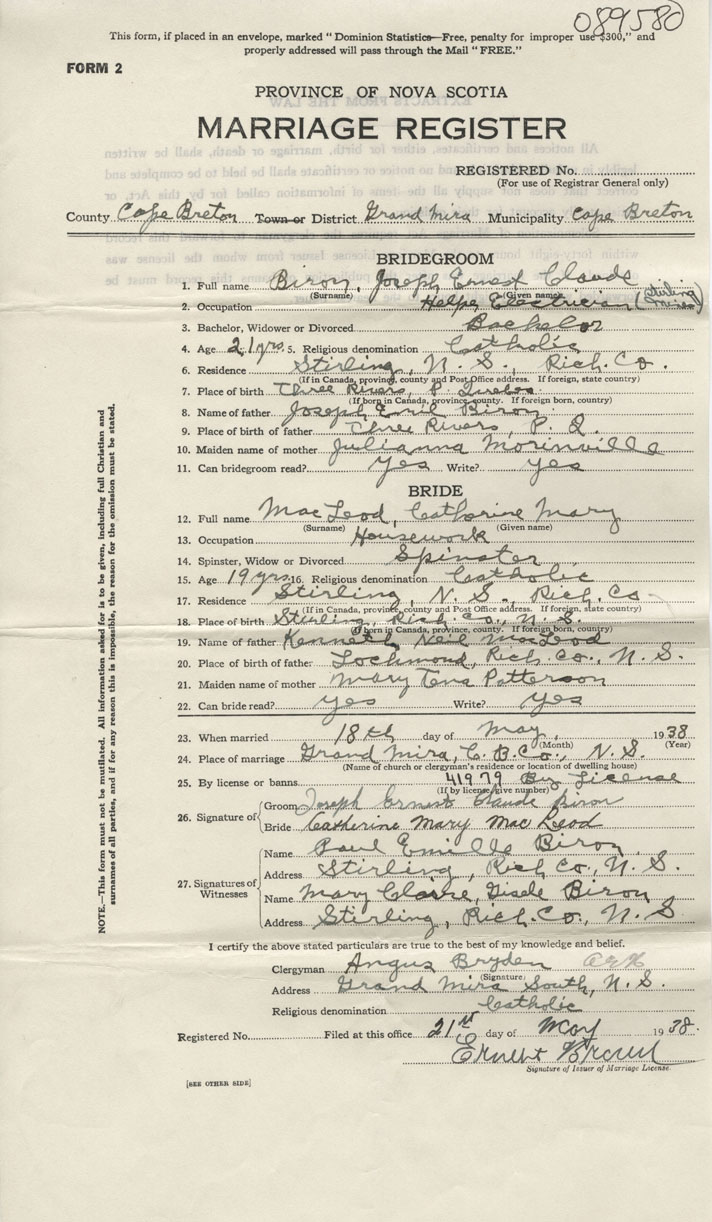 089580
This form, if placed in an envelope, marked " Dominion Statistics—Free, penalty for improper use $300," and
properly addressed will pass through the Mail "FREE."
FORM 2
PROVINCE OF NOVA SCOTIA
MARRIAGE REGISTER
REGISTERED No.
(For use of Registrar General only)
County Cape Breton Town or District Grand Mira Municipality Cape Breton
BRIDEGROOM
1. Full name Biron, Joseph Ernest Claude
(Surname) (Given name)
2. Occupation Helper Electrician (Stirling Mine)
3. Bachelor, Widower or Divorced Bachelor
4. Age 21 yrs. 5. Religious denomination Catholic
6. Residence Stirling, N. S., Rich. Co.
(If in Canada, province, county and Post Office address. If foreign, state country)
7. Place of birth Three Rivers, P. Quebec
(If born in Canada, province, county. If foreign born, country)
8. Name of father Joseph Emil Biron
9. Place of birth of father Three Rivers, P. Q.
10. Maiden name of mother Julianna Morinville
11. Can bridegroom read? Yes Write? Yes
BRIDE
12. Full name MacLeod, Catherine Mary
(Surname) (Given name)
13. Occupation Housework
14. Spinster, Widow or Divorced Spinster
15. Age 19 yrs. 16. Religious denomination Catholic
17. Residence Stirling, N. S., Rich. Co
(If in Canada, province, county and Post Office address. If foreign, state country)
18. Place of birth Stirling, Rich. Co., N. S.
(If born in Canada, province, county. If foreign born, country)
19. Name of father Kenneth Neil MacLeod
20. Place of birth of father Lochmond, Rich. Co., N. S.
21. Maiden name of mother Mary Tena Patterson
22. Can bride read? Yes Write? Yes
23. When married 18th day of May, 1938
(Month) (Year)
24. Place of marriage Grand Mira, C. B. Co., N. S.
(Name of church or clergyman's residence or location of dwelling house)
25. By license or banns 41979 By License
(If by license, give number)
26. Signature of Groom Joseph Ernest Claude Biron
Bride Catherine Mary MacLeod
27. Signatures of Witnesses
Name Paul Emille Biron
Address Stirling, Rich Co., N. S.
Name Mary Claire, Gisele Biron
Address Stirling, Rich. Co., N. S
I certify the above stated particulars are true to the best of my knowledge and belief.
Clergyman Angus Bryden
(Signature)
Address Grand Mira South, N. S.
Religious denomination Catholic
Registered No. Filed at this office 21st day of May 1938.
Ernest
Signature of Issuer of Marriage License.
[SEE OTHER SIDE]
NOTE.—This form must not be mutilated. All information asked for is to be given, including full Christian and
surnames of all parties, and if for any reason this is impossible, the reason for the omission must be stated.